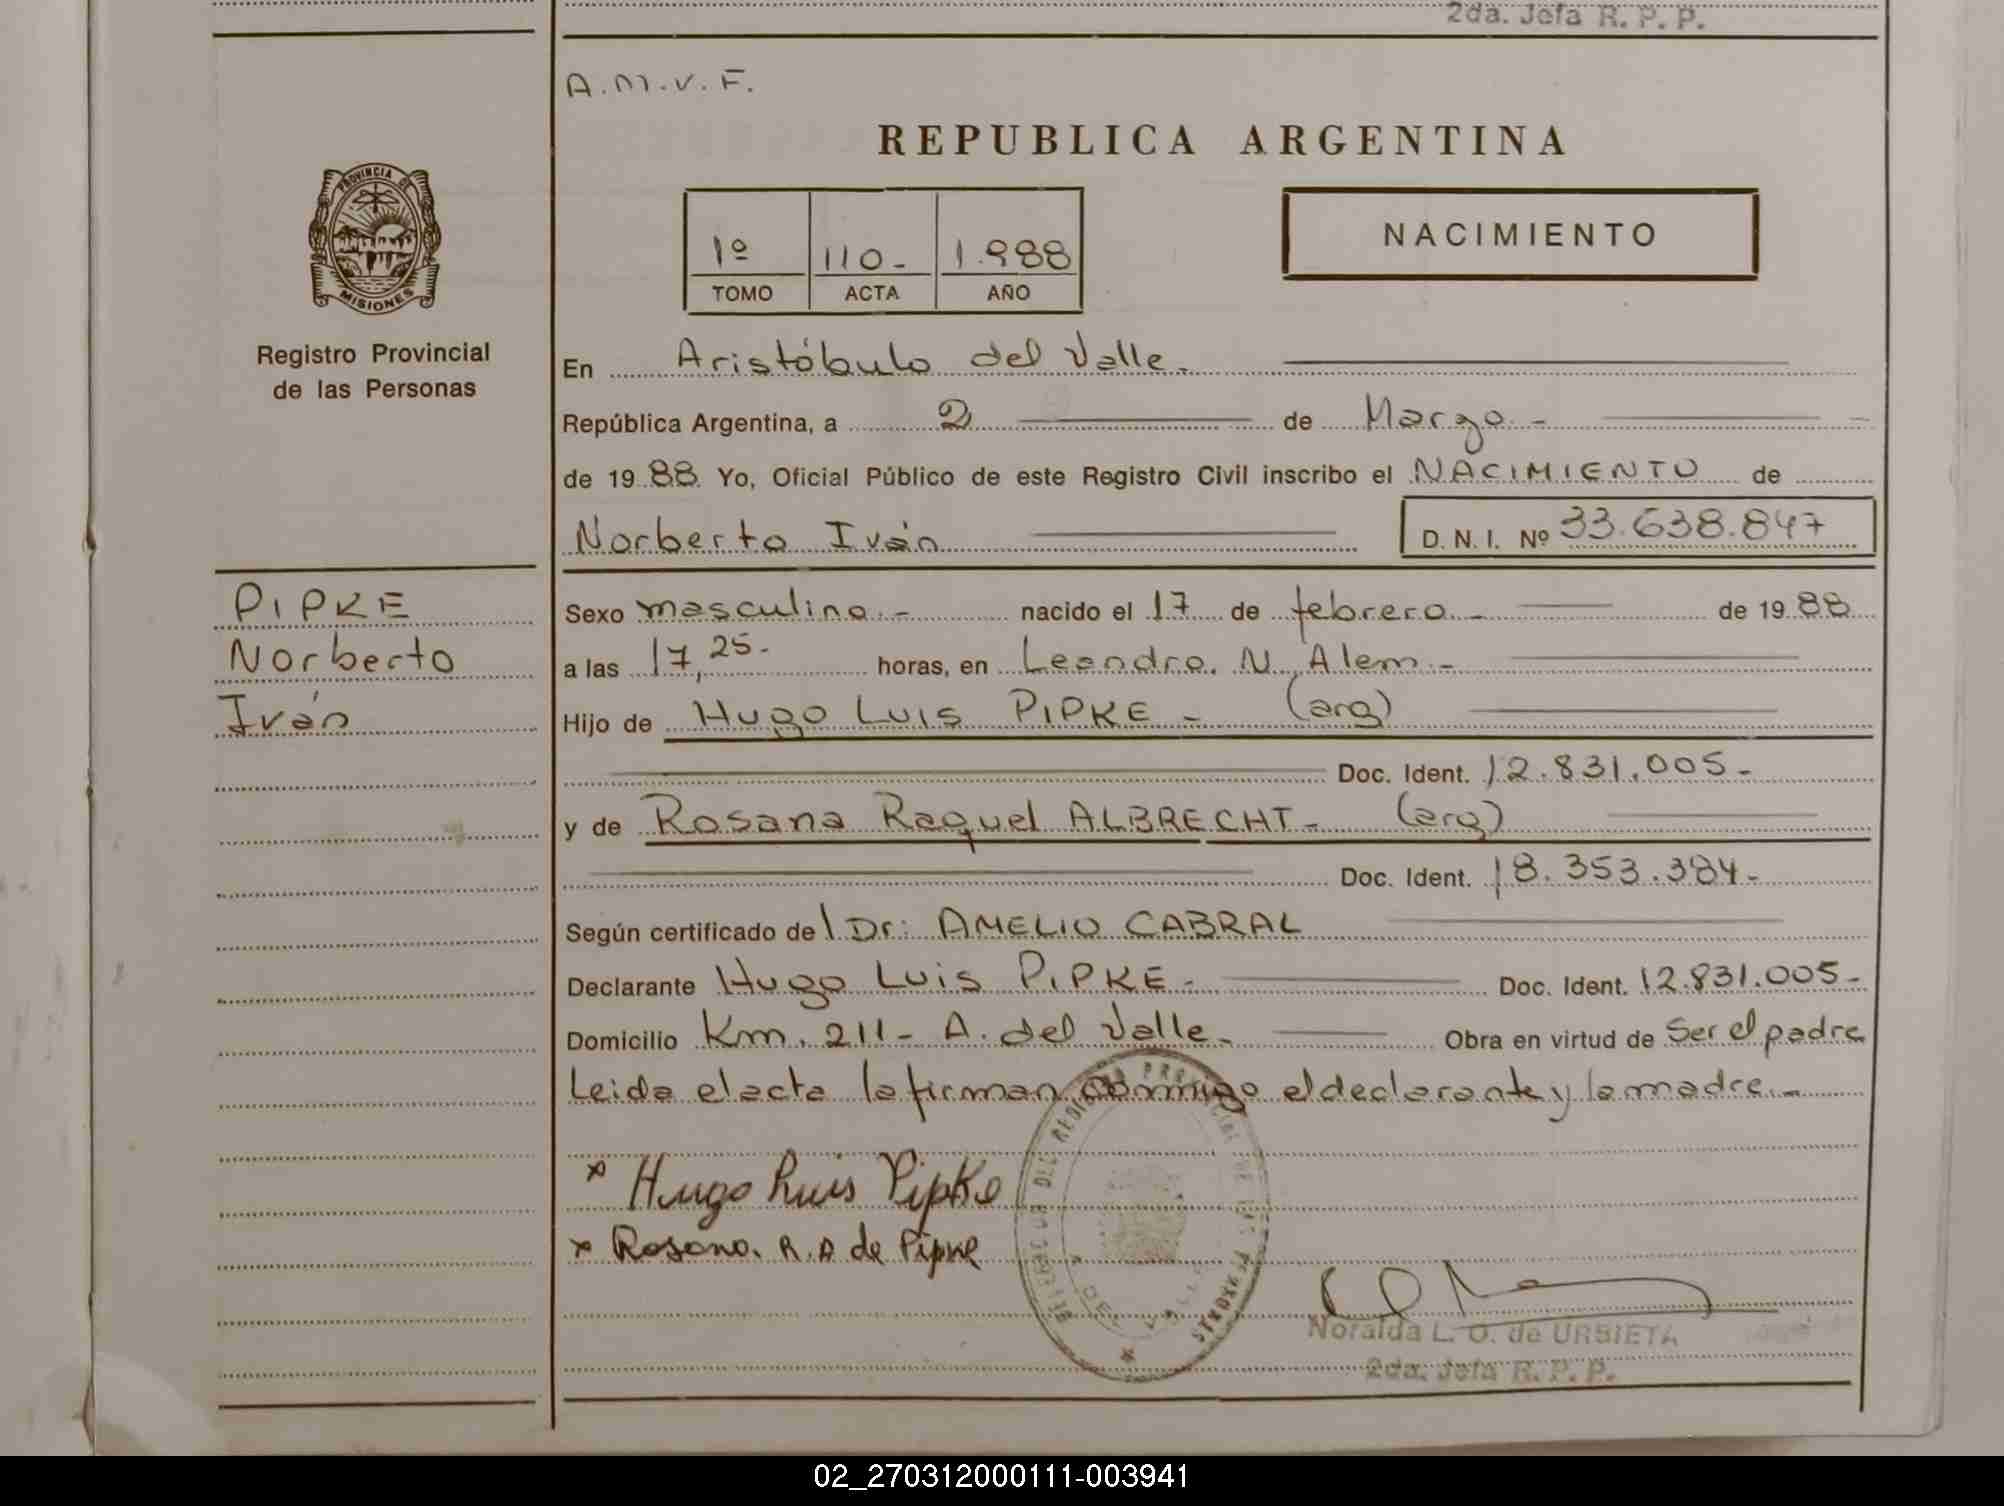 2da. Jefa R. P. P.
A.M.V.F.
REPUBLICA ARGENTINA
PROVINCIA DE
MISIONES
Registro Provincial
de las Personas
1º 110- 1.988
TOMO ACTA AÑO
NACIMIENTO
En Aristóbulo del Valle.
República Argentina, a 2 de Marzo.-
de 1988 Yo, Oficial Público de este Registro Civil inscribo el NACIMIENTO de
Norberto Iván D. N. I. Nº 33.638.847
PIPKE
Norberto
Iván
Sexo masculino.- nacido el 17 de febrero.- de 1988
a las 17,25.- horas, en Leandro. N. Alem.-
Hijo de Hugo Luis PIPKE - (arg)
Doc. Ident. 12.831.005-
y de Rosana Raquel ALBRECHT- (arg)
Doc. Ident. 18.353.384-
Según certificado del Dr: AMELIO CABRAL
Declarante Hugo Luis PIPKE- Doc. Ident. 12.831.005-
Domicilio Km. 211- A. del Valle- Obra en virtud de Ser el padre
Leida el acta la firman conmigo el declarante y la madre.-
x Hugo Luis Pipke
x Rosana. R. A de Pipke
Noralda L. O. de URBIETA
2da. Jefa R. P. P.
02_270312000111-003941